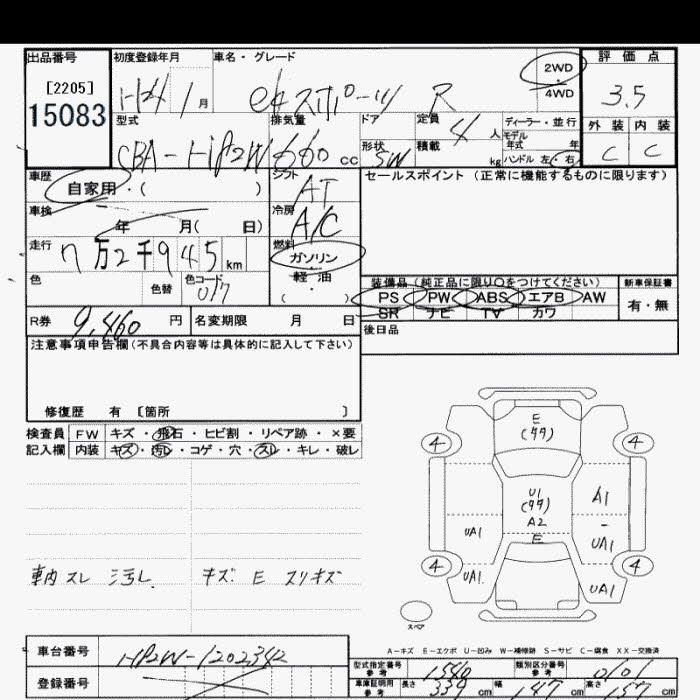 出品番号 初度登録年月 車名・グレード 2WD ・ 4WD 評価点
[2205]
15083 H24 1月 eKスポーツ R 3.5
型式 排気量 ドア 定員 4人 ディーラー・並行 外装 内装
CBA-H82W 660cc 形状 5W 積載 kg モデル年式 年 ハンドル 左・右 C C
車歴 自家用・( ) シフト AT セールスポイント (正常に機能するものに限ります)
車検 年 月( 日) 冷房 A/C
走行 7万2千945km 燃料 ガソリン・軽油・( )
色 色替 色コード 装備品 (純正品に限り○をつけてください) 新車保証書
PS PW ABS エアB AW 有・無
SR ナビ TV カワ
R券 9,460円 名変期限 月 日 後日品
注意事項申告欄(不具合内容等は具体的に記入して下さい)
修復歴 有 〔箇所 〕
検査員 FW キズ・飛石・ヒビ割・リペア跡・×要
記入欄 内装 キズ・汚レ・コゲ・穴・スレ・キレ・破レ
E
4 4
U1
A1
A2
UA1 E UA1
4 4
UA1 UA1
車内スレ 汚レ キズ E スリキズ
スペア
A-キズ E-エクボ U-凹み W-補修跡 S-サビ C-腐食 XX-交換済
車台番号 H82W-1202342
型式指定番号 参考 類別区分番号 参考
登録番号 車庫証明用 参考 長さ 339cm 幅 147cm 高さ cm